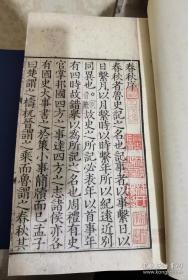 春秋序
春秋者魯史記之名也記事者以事繫日以
日繫月以月繫時以時繫年所以紀遠近別
同異也故史之所記必表年以首事年
有四時故錯舉以爲所記之名也周禮有史
官掌邦國四方之事達四方之志諸侯亦各
有國史大事書之於策小事簡牘而已孟子
曰楚謂之檮杌晉謂之乘而魯謂之春秋其